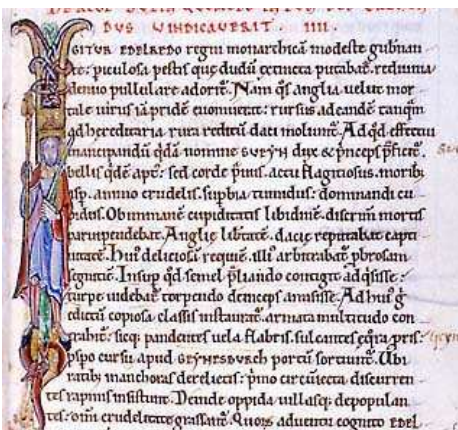 DVS VINDICAVERIT. IIII.
IGITVR EDELREDO regni monarchiā modeste gubñan
te: piculosa pestis que dudū extincta putabat̄: rediuiua
denuo pullulare adorit̄. Nam q̄s anglia uelut mor
tale uirus iā pridē euomuerat: rursus adeandē tanqm̄
ad hereditaria rura reditū daci moliunt̄. Ad qd̄ effectui
mancipandū qdā nomine SVEYN dux & p̄nceps p̄ficit̄.
belis qdē apē: sed corde p̄uus. actu flagitiosus. morib;
asp. animo crudelis. supbia tumidus: dominandi cu
pidus. Ob immanē cupiditatis libidinē. discrim̄ mortis
paruipendebat. Anglie libtatē. dacie reputabat capti
uitatē. Hui' deliciosā requiē. illi' arbitrabat̄ pbrosam
segnitiē. Insup qd semel p̄liando contigit adq̄sisse:
turpe uidebat̄ torpendo deinceps amisisse. Ad hui' ḡ
edictū copiosa classis instaurat̄. armata multitudo con
grabit̄: sicq; pandentes uela flabris. sulcantes eq̄ra pris:
pspo cursu apud GEYNESBVRCH portū sortiunt̄. Ubi
ratib; in anchoras derelictis: p̄mo circūiecta discurren
tes rapinis insistunt. Deinde oppida uillasq; depopulan
tes: om̄i crudelitate grassant̄. Quoȝ aduentu cognito EDEL